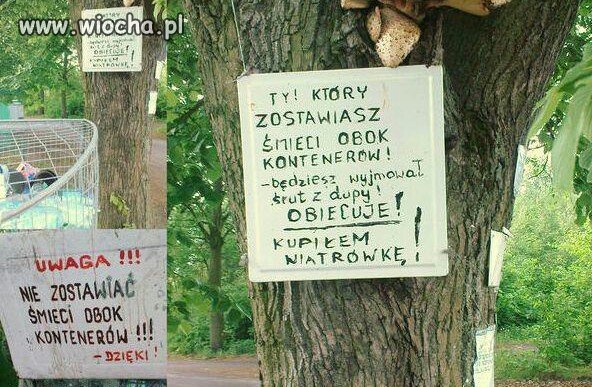 www.wiocha.pl
OBIECUJE!
KUPIŁEM
NIATRÓWKĘ!
TY! KTÓRY
ZOSTAWIASZ
ŚMIECI OBOK
KONTENERÓW!
-będziesz wyjmował
śrut z dupy!
OBIECUJE!
KUPIŁEM
NIATRÓWKĘ!
UWAGA !!!
NIE ZOSTAWIAĆ
ŚMIECI OBOK
KONTENERÓW !!!
-DZIĘKI!